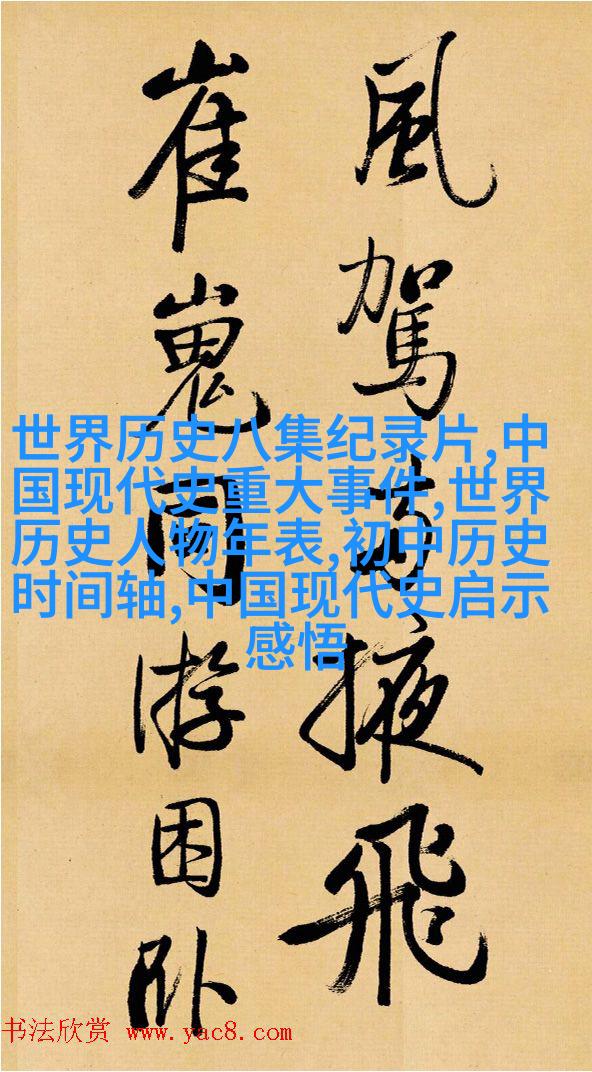 風駕兩掖飛
崔嵬同游困卧
世界历史八集纪录片,中
国现代史重大事件,世界
历史人物年表,初中历史
时间轴,中国现代史启示
感悟
书法欣赏 www.yac8.com